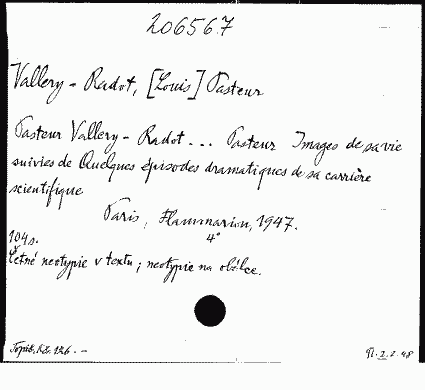 206567
Vallery - Radot, [Louis] Pasteur
Pasteur Vallery - Radot ... Pasteur Images de sa vie
suivies de Quelques épisodes dramatiques de sa carrière
scientifique
Paris, Flammarion, 1947.
104s. 4°
Četné neotypie v textu; neotypie na obálce.
Topič, Kč. 126.-